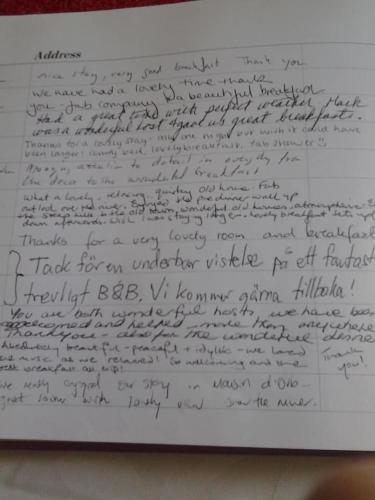 Address
nice stay, very good breakfast Thank you
We have had a lovely time thanks
you - fab company & a beautiful breakfast.
Had a great time with perfect weather, Mark
was a wonderful host & gave us great breakfasts.
Thanks for a lovely stay - only one night but wish it could have
been longer. Lovely bed, lovely breakfast. Fab shower
Amazing attention to detail in everything from
the decor to the wonderful breakfast
What a lovely, relaxing, quirky old house. Fab
the steep hills
down afterwards. Wish I was staying longer. Lovely breakfast
Thanks for a very lovely room and breakfast
Tack för en underbar vistelse på ett fantastiskt
trevligt B&B. Vi kommer gärna tillbaka!
You are both wonderful hosts, we have been
welcomed and helped more than anywhere
Thank you - also for the wonderful dinner
beautiful - peaceful & idyllic - we loved
the music as we relaxed! So welcoming and the
breakfast
Thank you!
We really enjoyed our stay in Maison d'Orb -
great room with lovely view over the river.